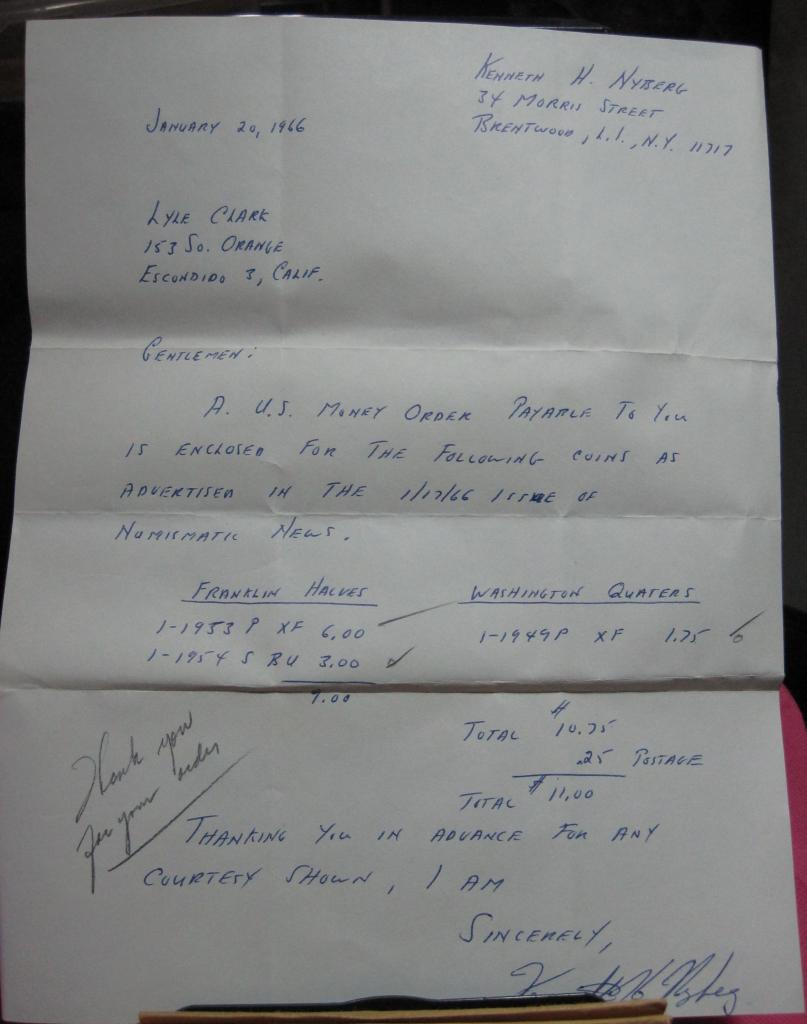 Kenneth H. Nyberg
34 Morris Street
Brentwood, L.I., N.Y. 11717
January 20, 1966
Lyle Clark
153 So. Orange
Escondido 3, Calif.
Gentlemen:
A. U.S. Money Order payable to you
is enclosed for the following coins as
advertised in the 1/17/66 issue of
Numismatic News.
Franklin Halves
1-1953 P XF 6.00
1-1954 S BU 3.00
9.00
Washington Quaters
1-1949 P XF 1.75
Total $10.75
.25 Postage
Total $11.00
Thank you
for your order
Thanking you in advance for any
courtesy shown, I am
Sincerely,
Kenneth H Nyberg